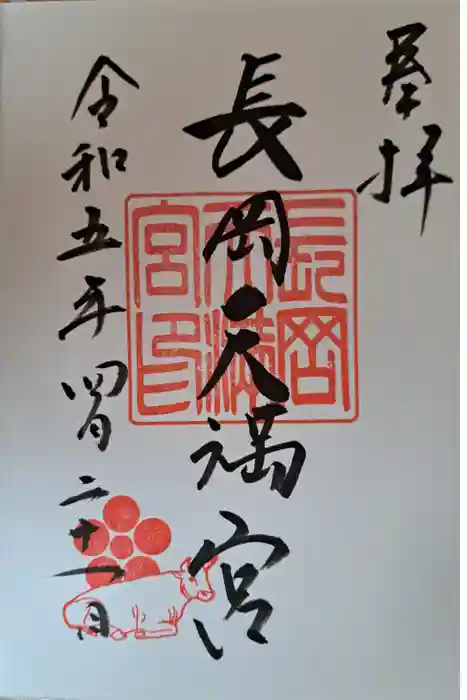 奉拝
長岡天満宮
令和五年四月二十一日
長岡
天満
宮印